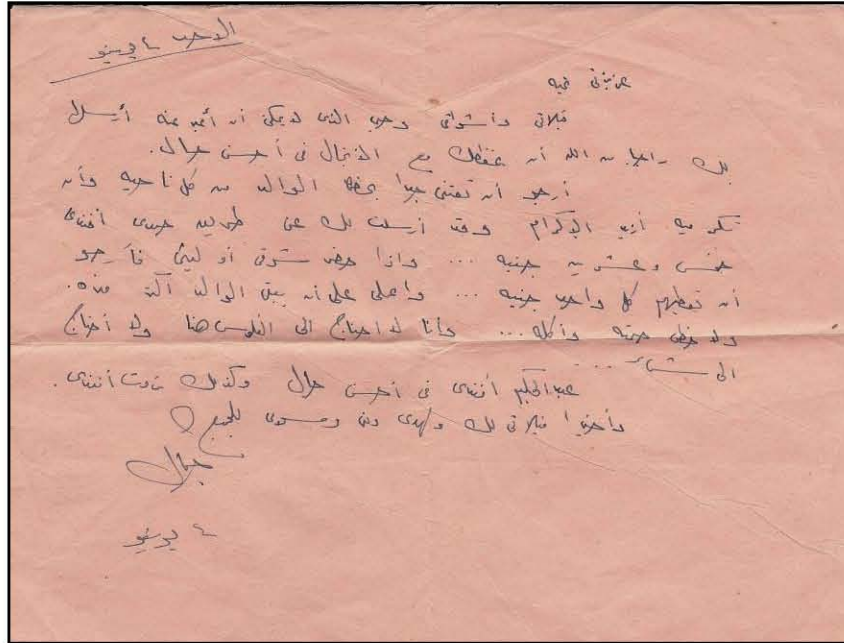 الاحد ٤ يونيو
عزيزتى تحيه
قبلاتى وأشواقى وحبى الذى لا يمكن أن أعبر عنه أرسله
لك راجيا من الله أن يحفظك مع الأنجال فى أحسن حال.
أرجو أن تعتنى جيدا بحضرة الوالد من كل ناحيه وأن
تكرميه أزيد الإكرام وقد أرسلت لك عن طريق حمدى أفندى
خمس وعشرين جنيه ... واذا حضر شوقى أو ليثى فأرجو
أن تعطيهم كل واحد جنيه ... واعملى على أن يبقى الوالد أكثر مده.
ولاحظى صحته وأكله ... وأنا لا أحتاج الى الفلوس هنا ولا أحتاج
الى شئ ...
عبدالحكيم أفندى فى أحسن حال وكذلك ثروت أفندى.
وأخيرا قبلاتى لك ولهدى ومنى وسلامى للجميع
جمال
٤ يونيو